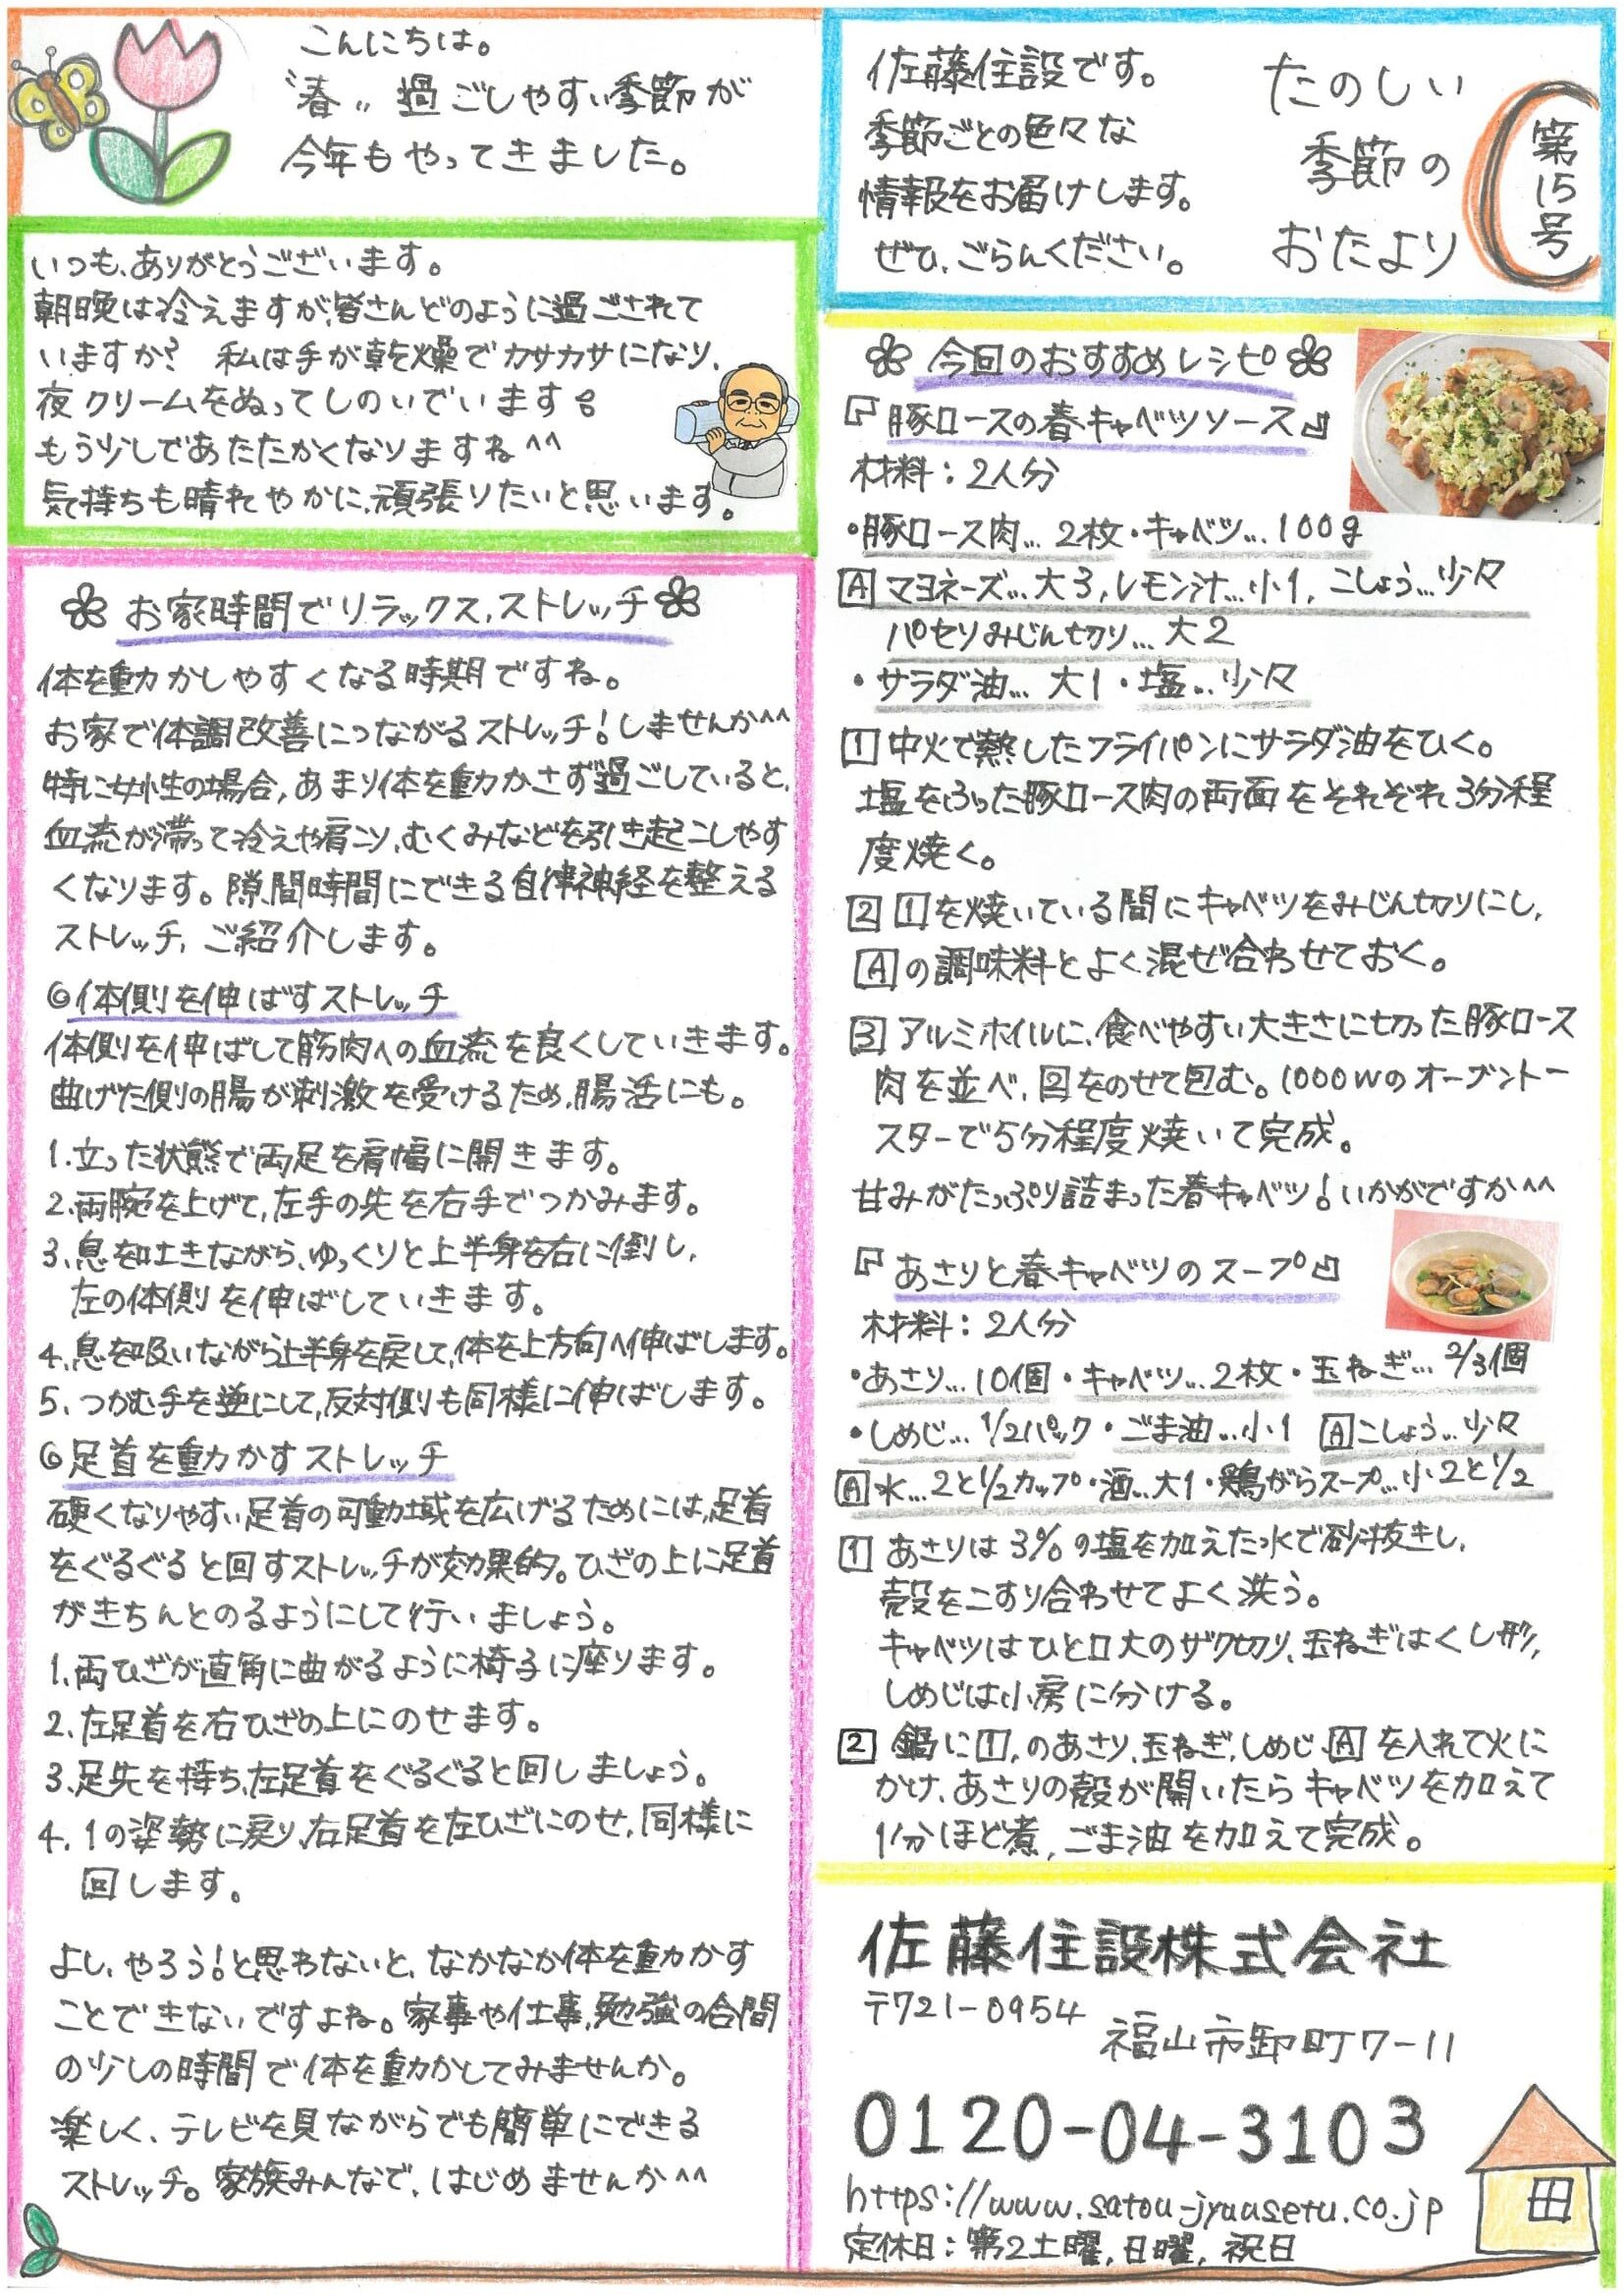 こんにちは。
〝春〟過ごしやすい季節が
今年もやってきました。
佐藤住設です。
季節ごとの色々な
情報をお届けします。
ぜひ、ごらんください。
たのしい
季節の
おたより
第15号
いつも、ありがとうございます。
朝晩は冷えますが、皆さんどのように過ごされて
いますか? 私は手が乾燥でカサカサになり、
夜クリームをぬってしのいでいます。
もう少しであたたかくなりますね^^
気持ちも晴れやかに、頑張りたいと思います。
お家時間でリラックス、ストレッチ
体を動かしやすくなる時期ですね。
お家で体調改善につながるストレッチ!しませんか^^
特に女性の場合、あまり体を動かさず過ごしていると、
血流が滞って冷えや肩コリ、むくみなどを引き起こしやす
くなります。隙間時間にできる自律神経を整える
ストレッチ、ご紹介します。
◎体側を伸ばすストレッチ
体側を伸ばして筋肉への血流を良くしていきます。
曲げた側の腸が刺激を受けるため、腸活にも。
1.立った状態で両足を肩幅に開きます。
2.両腕を上げて、左手の先を右手でつかみます。
3.息を吐きながら、ゆっくりと上半身を右に倒し、
左の体側を伸ばしていきます。
4.息を吸いながら上半身を戻して、体を上方向へ伸ばします。
5.つかむ手を逆にして、反対側も同様に伸ばします。
◎足首を動かすストレッチ
硬くなりやすい足首の可動域を広げるためには、足首
をぐるぐると回すストレッチが効果的。ひざの上に足首
がきちんとのるようにして行いましょう。
1.両ひざが直角に曲がるように椅子に座ります。
2.左足首を右ひざの上にのせます。
3.足先を持ち、左足首をぐるぐると回しましょう。
4.1の姿勢に戻り、右足首を左ひざにのせ、同様に
回します。
よし、やろう!と思わないと、なかなか体を動かす
ことできないですよね。家事や仕事、勉強の合間
の少しの時間で体を動かしてみませんか。
楽しく、テレビを見ながらでも簡単にできる
ストレッチ。家族みんなで、はじめませんか^^
今回のおすすめレシピ
『豚ロースの春キャベツソース』
材料:2人分
・豚ロース肉…2枚・キャベツ…100g
A マヨネーズ…大3,レモン汁…小1,こしょう…少々
パセリみじん切り…大2
・サラダ油…大1・塩…少々
1 中火で熱したフライパンにサラダ油をひく。
塩をふった豚ロース肉の両面をそれぞれ3分程
度焼く。
2 1を焼いている間にキャベツをみじん切りにし、
Aの調味料とよく混ぜ合わせておく。
3 アルミホイルに、食べやすい大きさに切った豚ロース
肉を並べ、2をのせて包む。1000Wのオーブントー
スターで5分程度焼いて完成。
甘みがたっぷり詰まった春キャベツ!いかがですか^^
『あさりと春キャベツのスープ』
材料:2人分
・あさり…10個・キャベツ…2枚・玉ねぎ…2/3個
・しめじ…1/2パック・ごま油…小1 Aこしょう…少々
A水…2と1/2カップ・酒…大1・鶏がらスープ…小2と1/2
1 あさりは3%の塩を加えた水で砂抜きし、
殻をこすり合わせてよく洗う。
キャベツはひと口大のザク切り、玉ねぎはくし形、
しめじは小房に分ける。
2 鍋に1、のあさり、玉ねぎ、しめじ、Aを入れて火に
かけ、あさりの殻が開いたらキャベツを加えて
1分ほど煮、ごま油を加えて完成。
佐藤住設株式会社
〒721-0954
福山市卸町7-11
0120-04-3103
https://www.satou-jyuusetu.co.jp
定休日:第2土曜,日曜,祝日